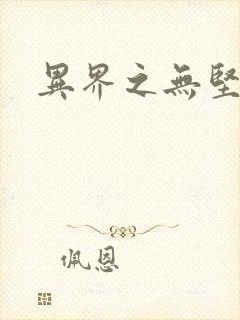 異界之無堅
佩恩